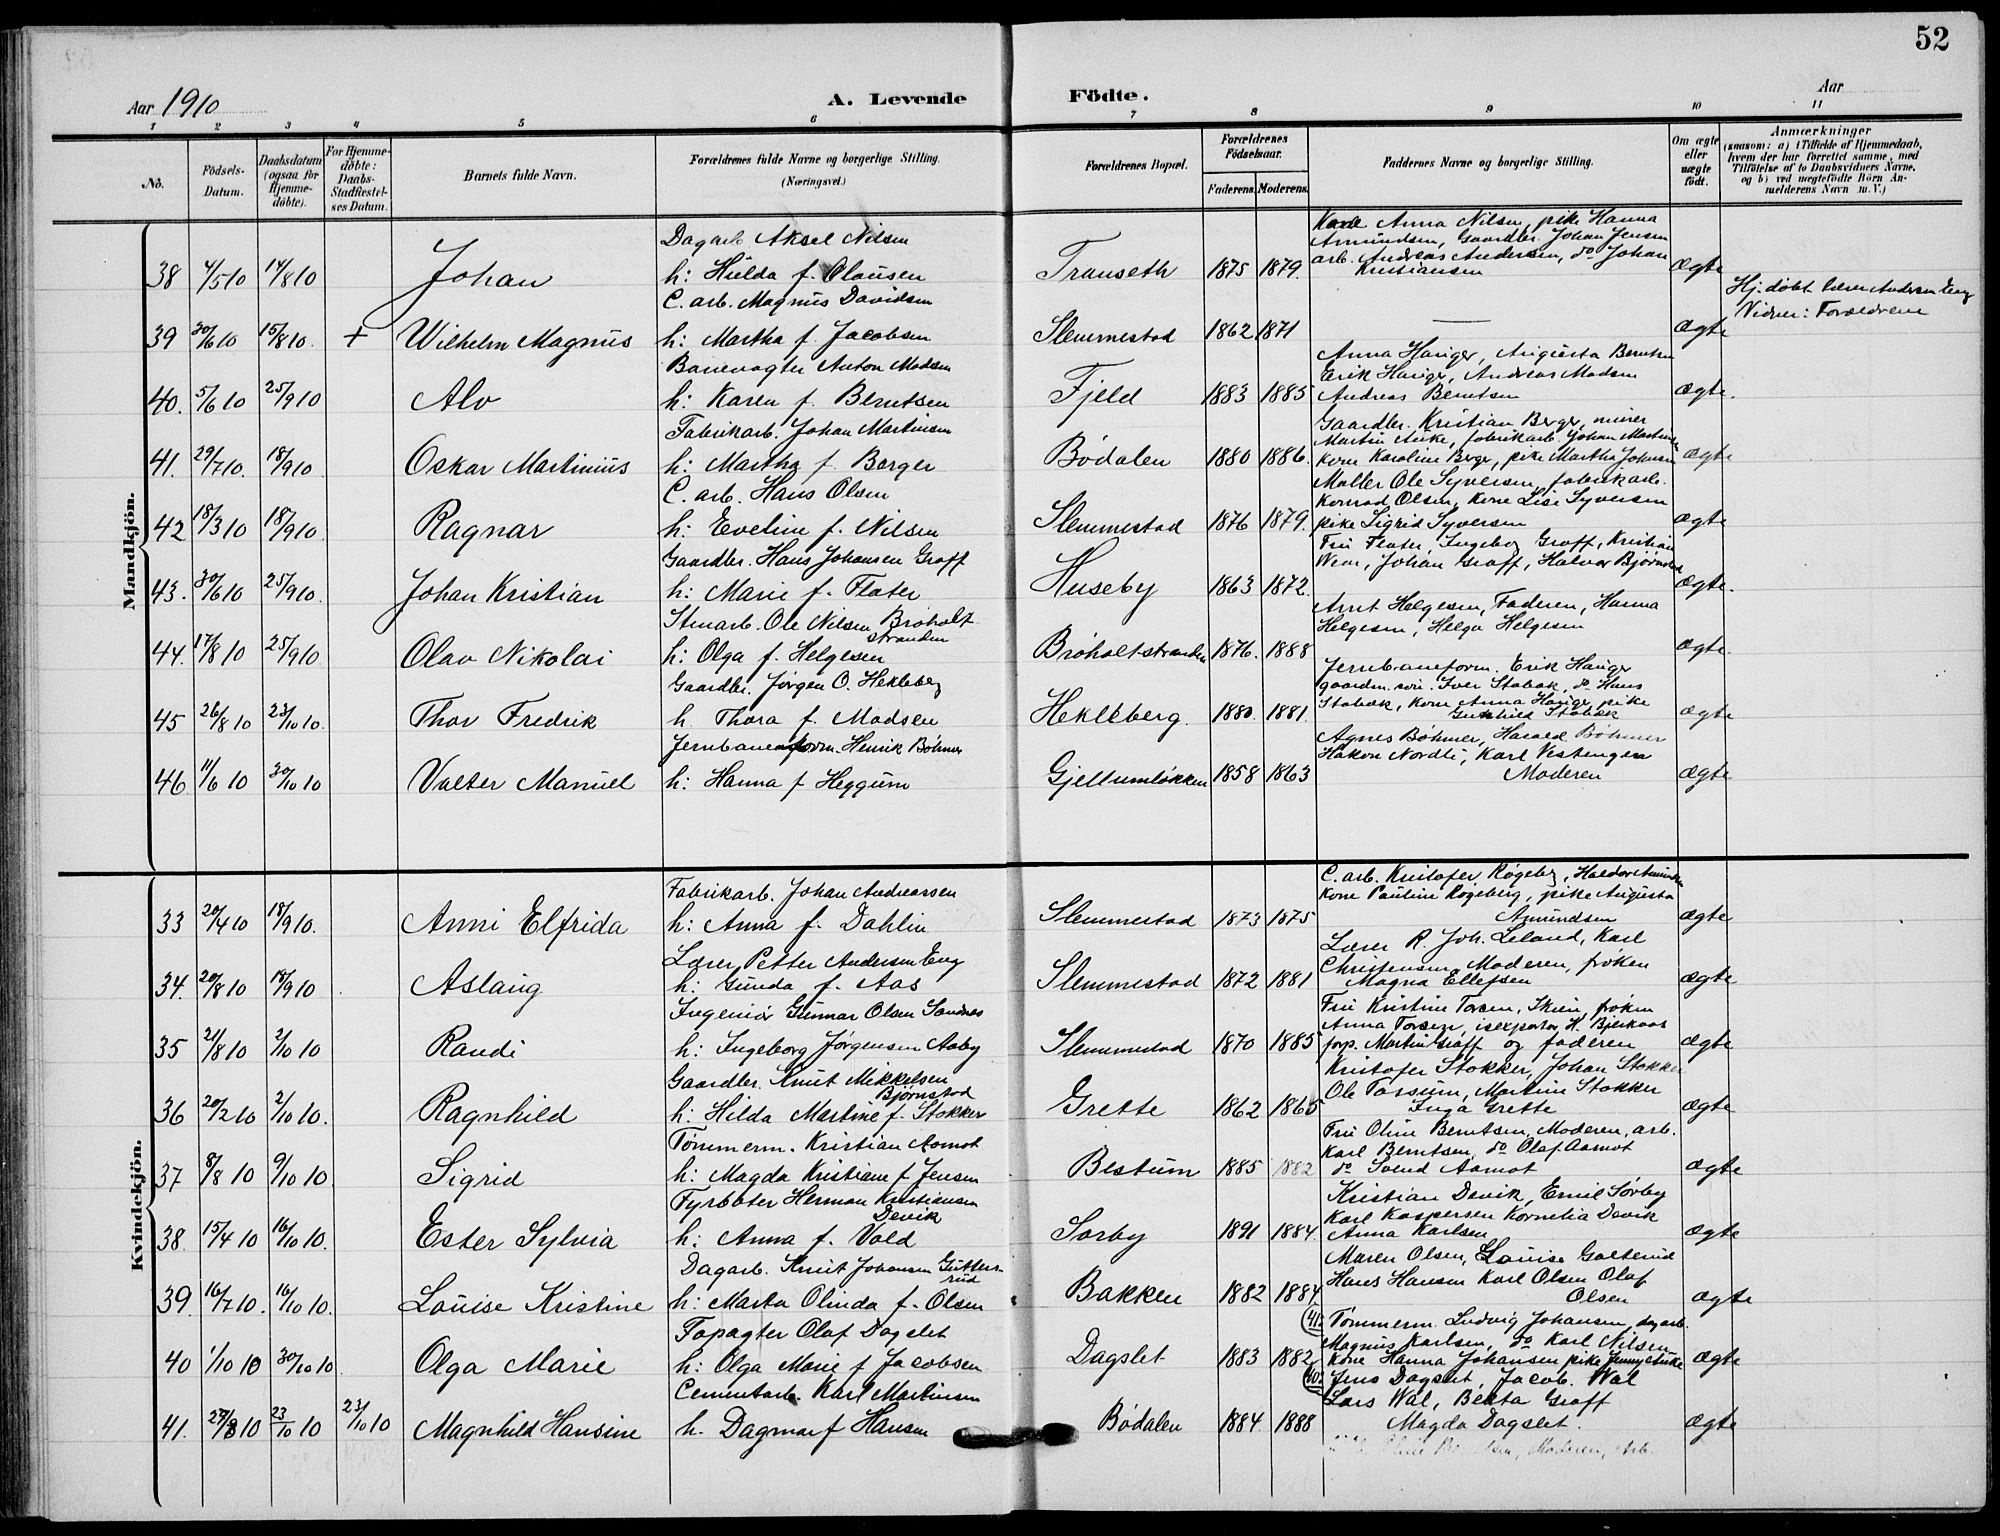 52
Aar 1910
A. Levende Födte.
Aar
1 2 3 4 5 6 7 8 9 10 11
No.
Födsels-Datum.
Daabsdatum (ogsaa for Hjemme-döbte).
For Hjemme-döbte: Daabs-Stadfæstel-ses Datum.
Barnets fulde Navn.
Forældrenes fulde Navne og borgerlige Stilling. (Næringsvei.)
Forældrenes Bopæl.
Forældrenes Födselsaar.
Faderens. Moderens.
Faddernes Navne og borgerlige Stilling.
Om ægte eller uægte födt.
Anmærkninger
(saasom: a) i Tilfælde af Hjemmedaab, hvem der har forrettet samme, med Tilföielse af to Daabsvidners Navne, og b) ved uægtefödte Börn An-melderens Navn m.V.)
Mandkjön.
Dagarb Aksel Nilsen
Anna Nilsen, pike Hanna
Amundsen, Gaardbr. Johan Jensen
38 4/5 10 14/8 10 Johan h: Hulda f. Olausen Transeth 1875 1879. arb. Andreas Andersen, do Johan ægte
Kristiansen
C. arb. Magnus Davidsen
Hj. døbt. lærer Andersen Eng
Vidner: Forældrene
39 30/6 10 15/8 10. + Wilhelm Magnus h: Martha f. Jacobsen Slemmestad 1862 1871 — ægte
Banevogter Anton Madsen
Anna Hariger, Augusta Berntsen
Erik Hariger, Andreas Madsen
40. 5/6 10 25/9 10 Alv h: Karen f. Berntsen Fjeld 1883 1885 Andreas Berntsen ægte.
Fabrikarb. Johan Martinsen
Gaardbr. Kristian Berger, murer
Martin Auke, fabrikarb. Johan Martinsen
41. 29/7 10. 18/9 10. Oskar Martinius h: Martha f Berger Bødalen 1880 1886. kone Karoline Berger, pike Martha Johnsen ægte
C. arb. Hans Olsen
Møller Ole Syversen, fabrikarb.
Konrad Olsen, kone Lise Syversen
42 18/3 10 18/9 10. Ragnar h: Eveline f. Nilsen Slemmestad 1876 1879. pike Sigrid Syversen ægte
Gaardbr. Hans Johansen Grøff
Fru Flater, Ingeborg Grøff, Kristian
Wear, Johan Grøff, Halvor Bjørnstad
43. 30/6 10 25/9 10. Johan Kristian h: Marie f. Flater Huseby 1863 1872. ægte.
Stenarb. Ole Nilsen Brøholt
stranden
Arnt Helgesen, Faderen, Hanna
Helgesen, Helga Helgesen
44. 17/8 10 25/9 10 Olav Nikolai h: Olga f. Helgesen Brøholtstranden 1876. 1888 ægte
Gaardbr. Jørgen O. Hekleberg
Jernbaneform. Erik Hariger
gaardm. søn. Iver Stabæk, do Hans
45 26/8 10 23/10 10. Thor Fredrik h. Thora f. Madsen Hekleberg. 1880. 1881. Stabæk, kone Anna Hariger, pike ægte
Gunhild Stabæk
Jernbaneform. Henrik Bøhmer
Agnes Bøhmer, Harald Bøhmer
Håkon Nordli, Karl Vestengen
46 11/6 10 30/10 10 Valter Manuel h: Hanna f Heggum Gjellumløkken 1858 1863 Moderen ægte
Kvindekjön.
Fabrikarb. Johan Andreassen
C. arb. Kristofer Røgeberg, Haldor Amundsen
kone Pauline Røgeberg, pike Augusta
33 20/4 10 18/9 10. Anni Elfrida h: Anna f. Dahlin Slemmestad 1873 1875 Amundsen ægte
Lærer Petter Andersen Eng
Lærer R. Joh. Leland, Karl
Christensen, Moderen, frøken
34. 20/8 10 18/9 10 Aslaug h: Gunda f. Aas Slemmestad 1872 1881 Magna Ellefsen ægte
Ingeniør Gunnar Olsen Sandnes
Fru Kristine Torsen, Skien, frøken
Anna Torsen, isexportør H. Bjerkaas
35 21/8 10 2/10 10 Randi h: Ingeborg Jørgensen Aaby Slemmestad 1870 1885 forp. Martin Grøff og faderen ægte
Gaardbr. Knut Mikkelsen
Bjørnstad
Kristofer Stokker, Johan Stokker
Ole Tassum, Martine Stokker
36 20/2 10 2/10 10. Ragnhild h: Hilda Martine f. Stokker Grette 1862 1865 Inga Grette ægte
Tømmerm. Kristian Aamot
Fru Oline Berntsen, Moderen, arb.
Karl Berntsen, do Olaf Aamot
37 8/8 10 9/10 10 Sigrid h: Magda Kristiane f Jensen Bestum 1885 1882 do Svend Aamot ægte
Fyrbøter Herman Kristiansen
Devik
Kristian Devik, Emil Sørby
Karl Kaspersen Kornelia Devik
38. 15/4 10 16/10 10. Ester Sylvia h: Anna f. Vold Sørby 1891 1884 Anna Karlsen ægte
Dagarb. Knut Johansen Gutters-
rud
Maren Olsen, Louise Galterud
Hans Hansen Karl Olsen Olaf
39. 16/7 10. 16/10 10. Louise Kristine h: Marta Olinda f. Olsen Bakken 1882 1884 Olsen ægte
Fopagter Olaf Dagslet
(41. Tømmerm. Ludvig Johansen, dagarb.
Magnus Karlsen, do Karl Nilsen
40 1/10 10 30/10 10. Olga Marie h: Olga Marie f Jacobsen Dagslet 1883 1882 kone Hanna Johansen pike Jenny Auke ægte
Cementarb. Karl Martinsen
(40. Jens Dagslet, Jacob. Wal
Lars Wal, Berta Grøff
41. 27/8 10 23/10 10 23/10 10 Magnhild Hansine h. Dagmar f Hansen Bødalen 1884. 1888 Magda Dagslet. ægte
Moderen, Arb.